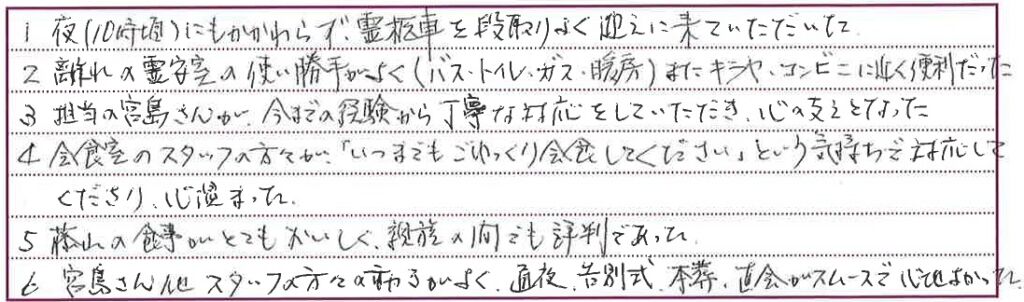 1 夜(10時頃)にもかかわらず、霊柩車を段取りよく迎えに来ていただいた
2 離れの霊安室の使い勝手がよく(バス・トイレ・ガス・暖房)またキラヤ、コンビニに近く便利だった
3 担当の宮島さんが、今までの経験から丁寧な対応をしていただき、心の支えとなった
4 会食室のスタッフの方々が、「いつまでもごゆっくり会食してください」という気持ちで対応して
くださり、心温まった。
5 藤山の食事がとてもおいしく、親族の間でも評判であった。
6 宮島さん他スタッフの方々の かよく、通夜、告別式、本葬、直会がスムースで心地よかった。